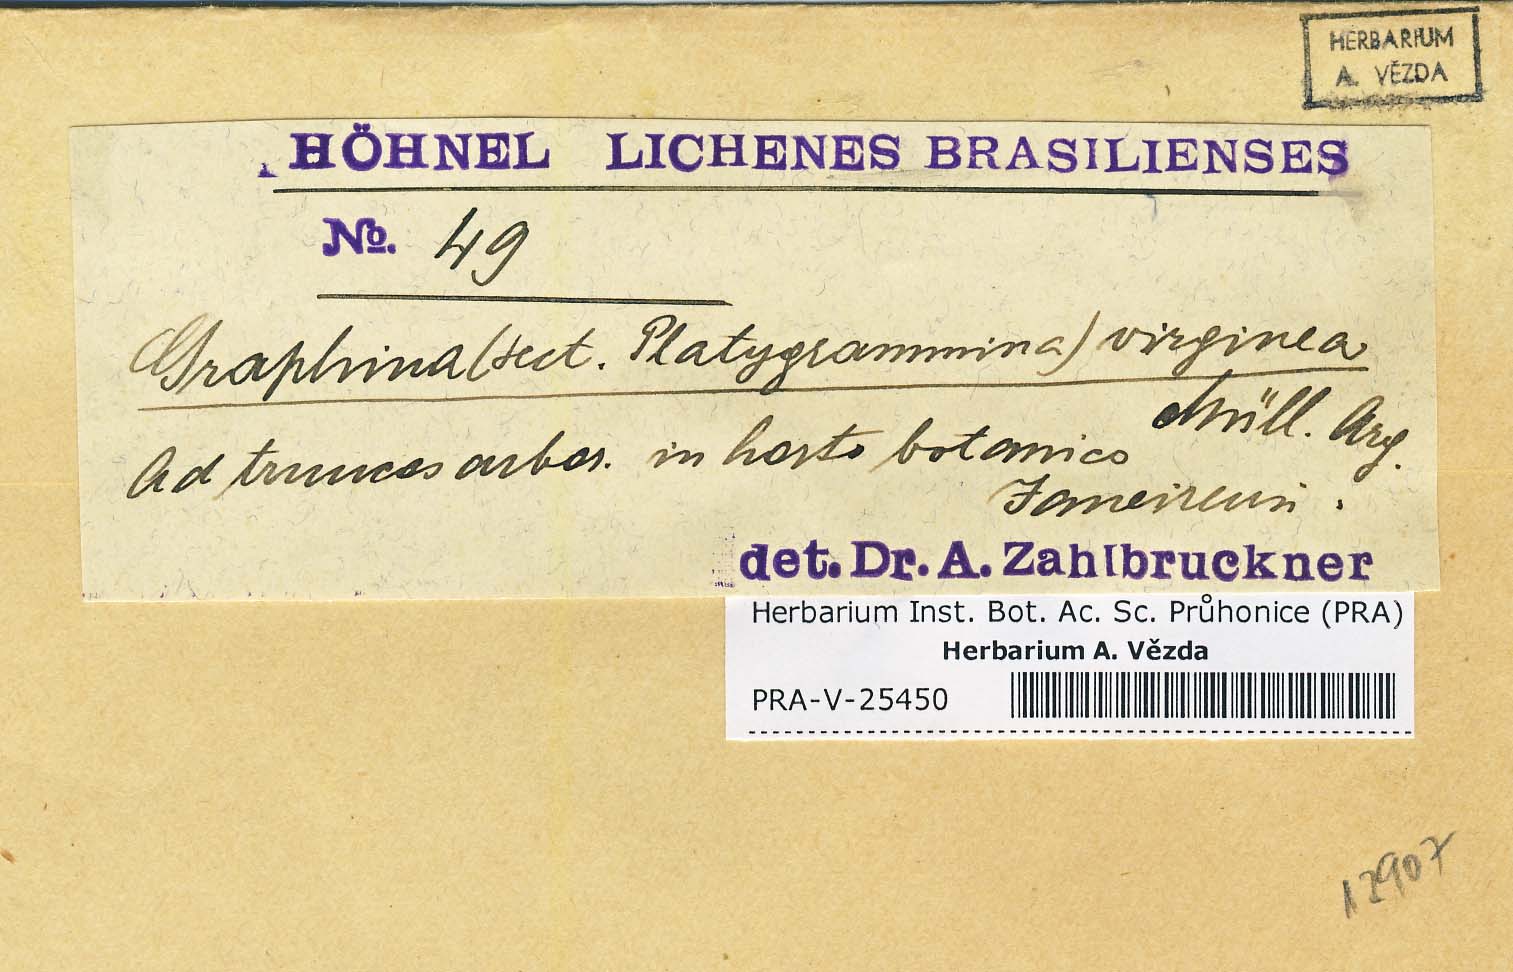 HERBARIUM
A. VĚZDA
HÖHNEL LICHENES BRASILIENSES
No. 49
Graphina (sect. Platygrammina) virginea
Müll. Arg.
Ad truncos arbor. in horto botanico
Janeirensi.
det. Dr. A. Zahlbruckner
Herbarium Inst. Bot. Ac. Sc. Průhonice (PRA)
Herbarium A. Vězda
PRA-V-25450
12907